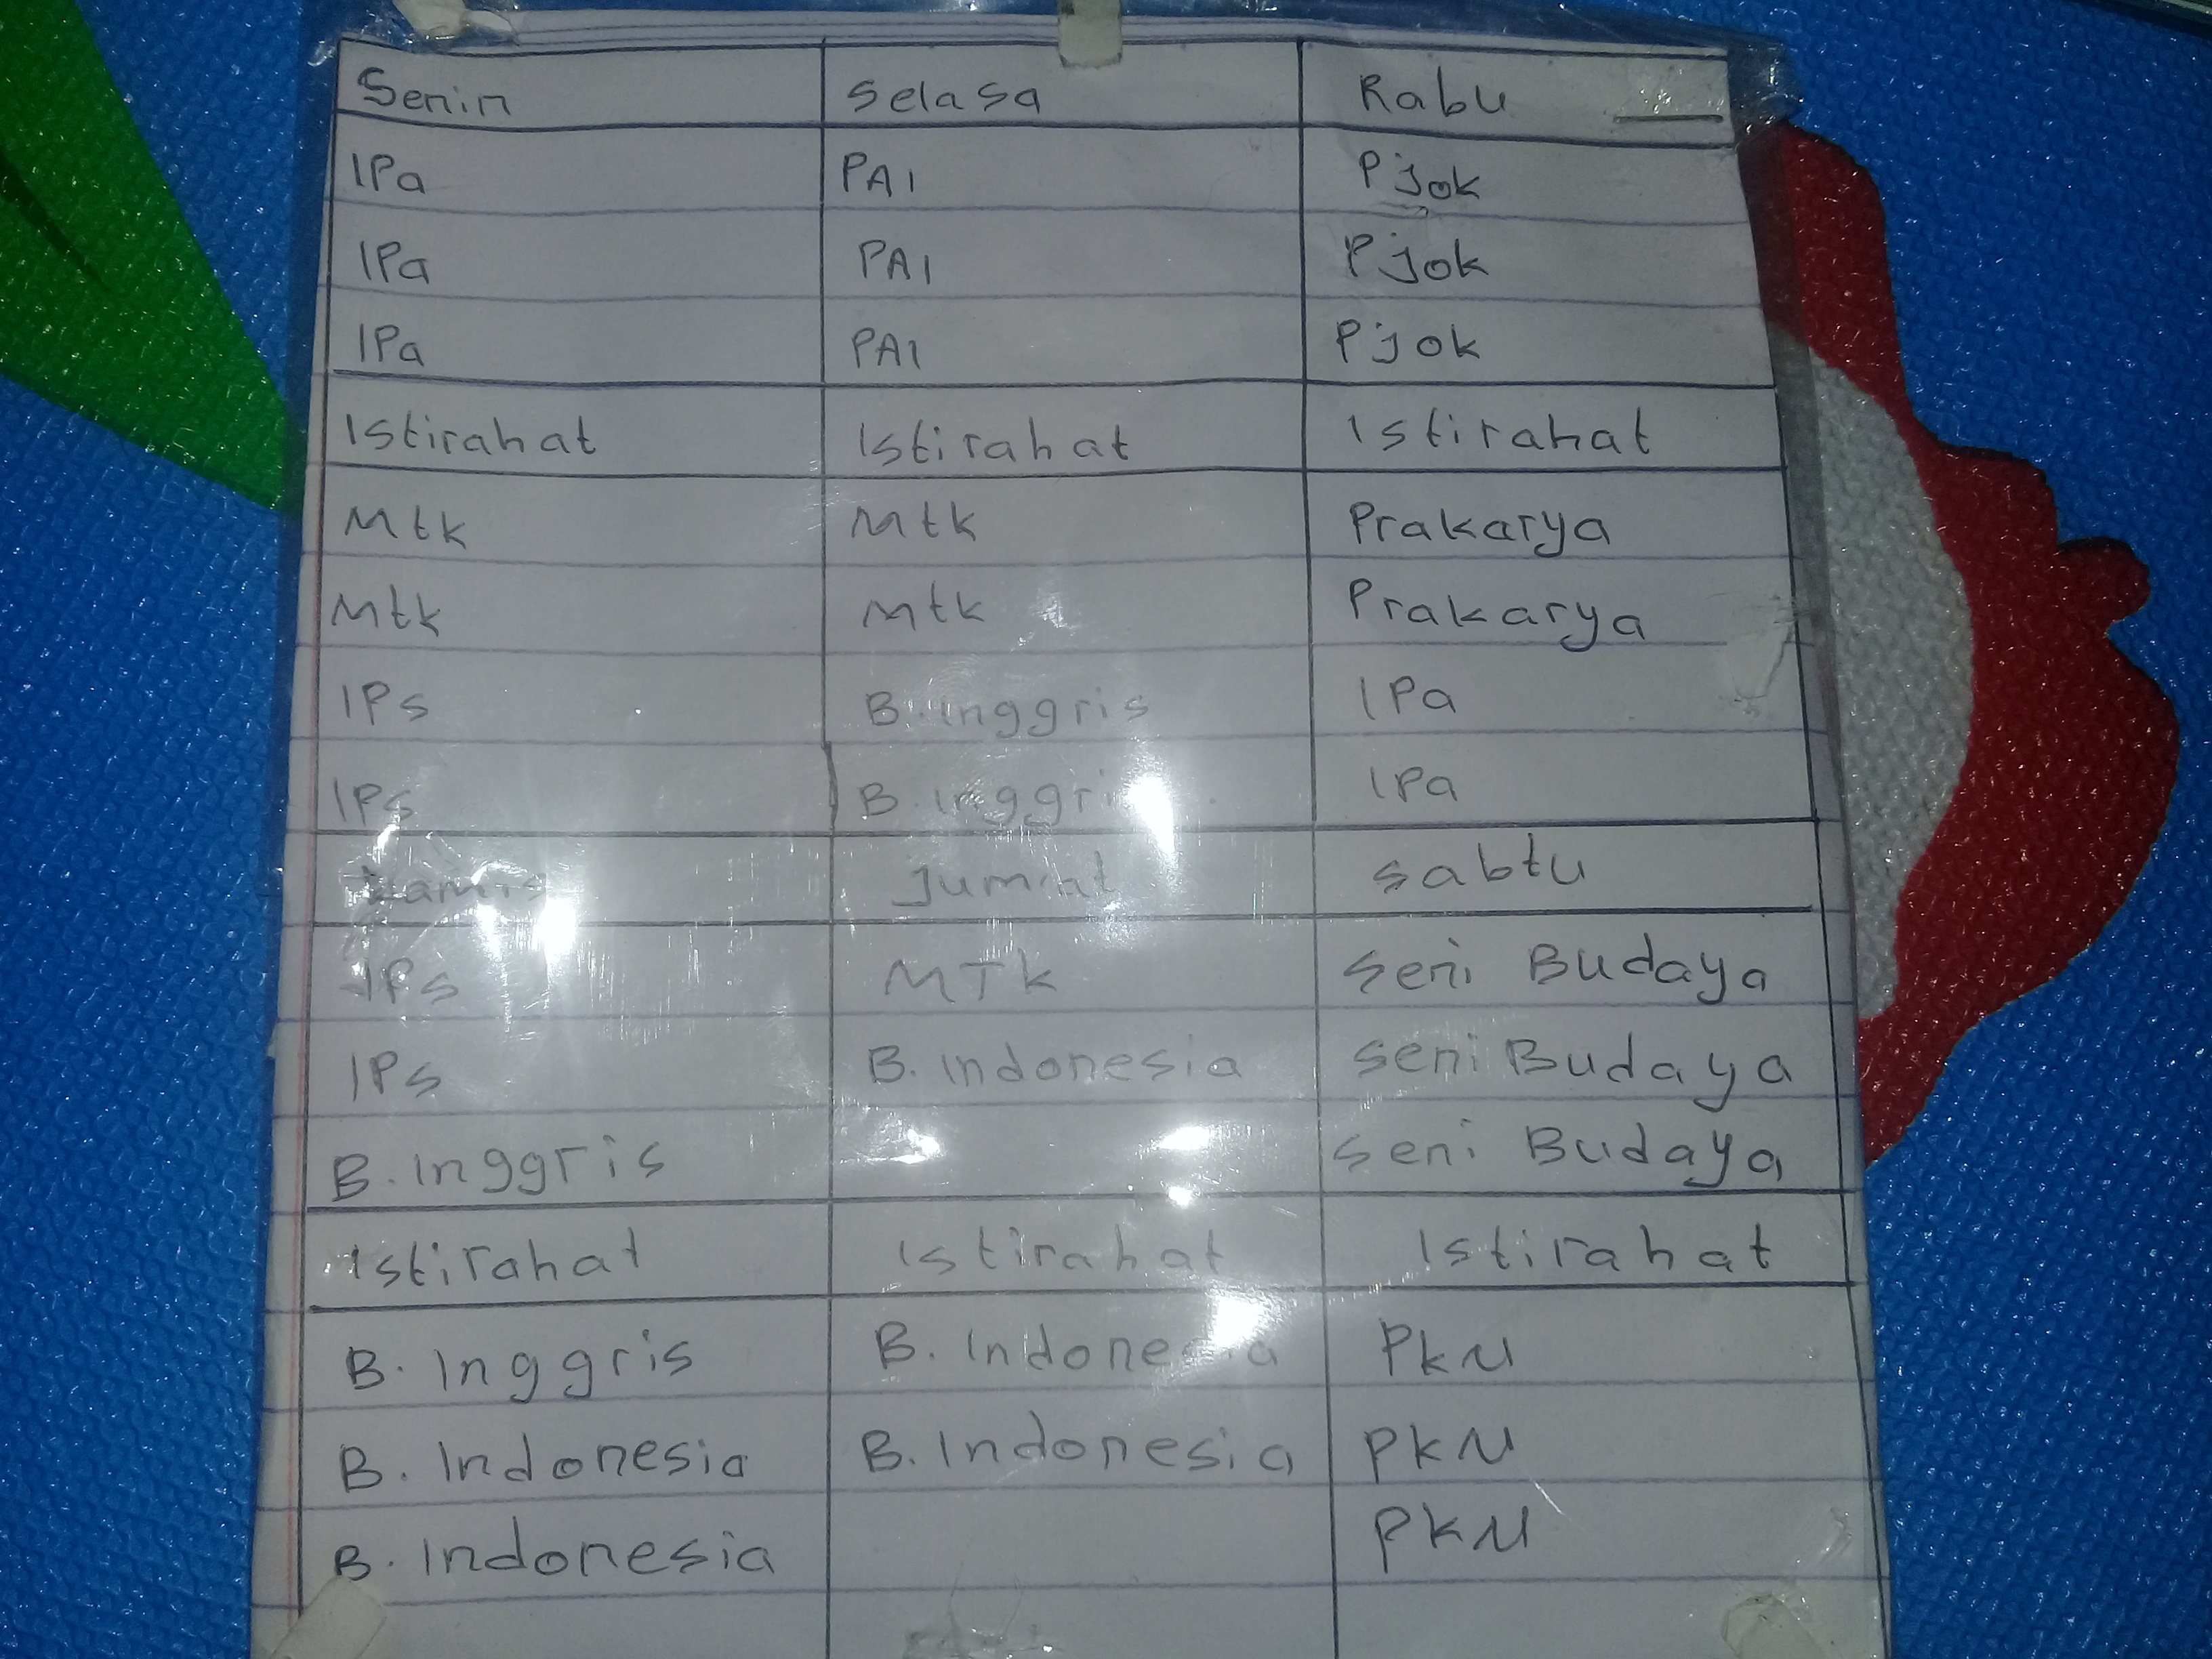 Senin Selasa Rabu
IPa PAI Pjok
IPa PAI Pjok
IPa PAI Pjok
Istirahat Istirahat Istirahat
Mtk Mtk Prakarya
Mtk Mtk Prakarya
IPs B. Inggris IPa
IPs B. Inggris IPa
Kamis Jum'at Sabtu
IPs MTK Seni Budaya
IPs B. Indonesia Seni Budaya
B. Inggris Seni Budaya
Istirahat Istirahat Istirahat
B. Inggris B. Indonesia PKN
B. Indonesia B. Indonesia PKN
B. Indonesia PKN